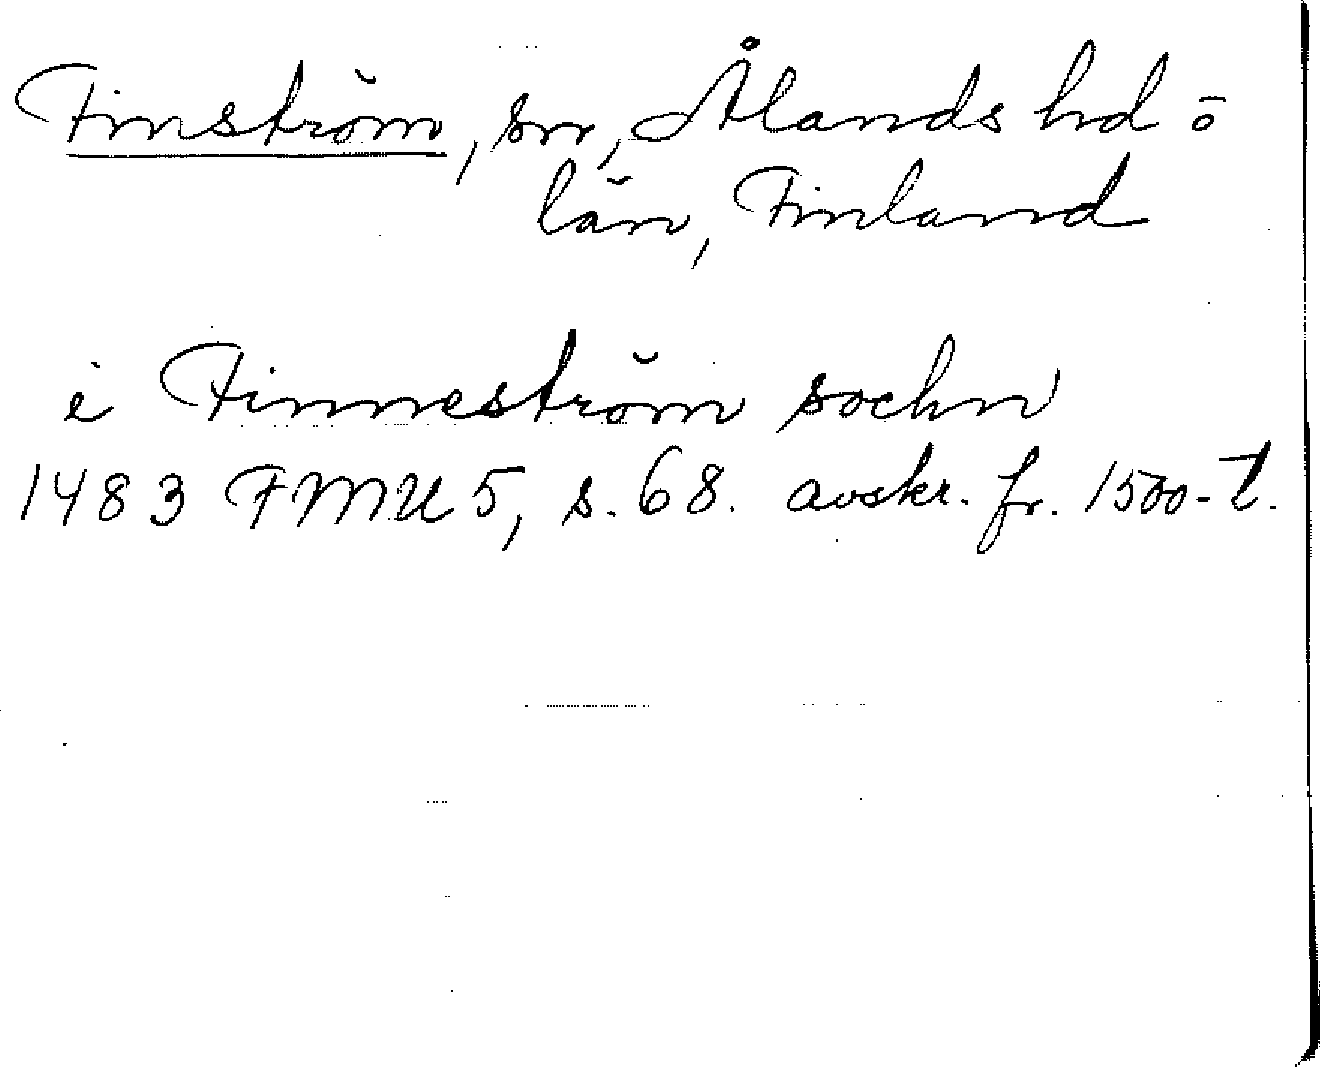 Finström, sn, Ålands hd ō
län, Finland
i Finneström sochn
1483 FMU 5, s. 68. avskr. fr. 1500-t.